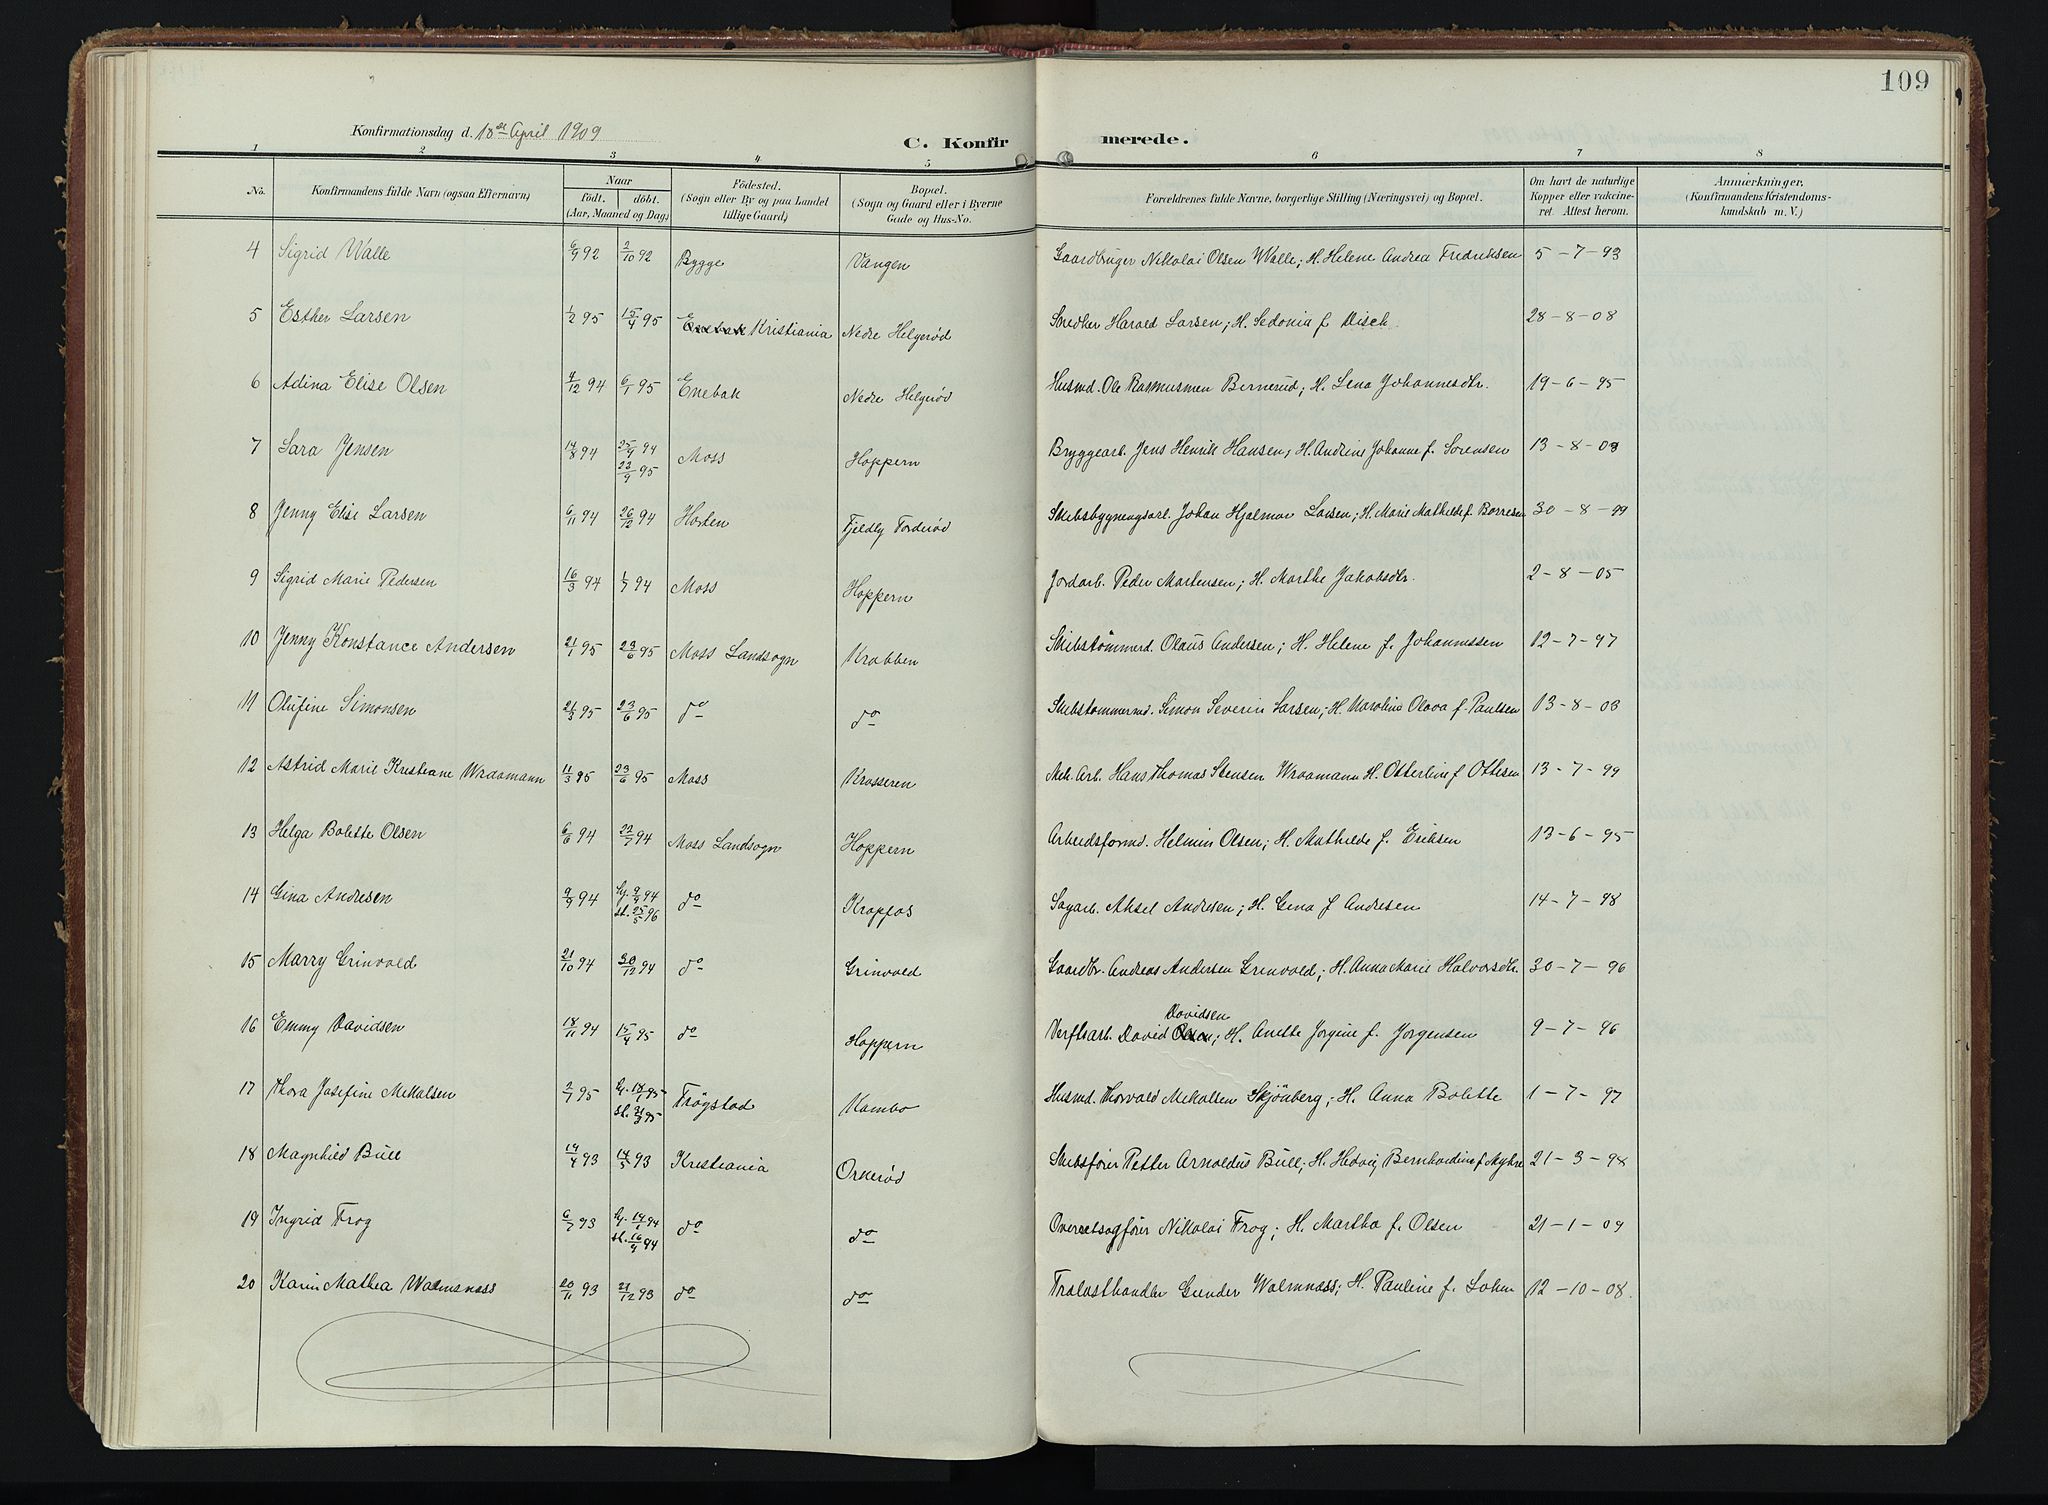 109
Konfirmationsdag d. 18de April 1909
C. Konfirmerede.
1 2 3 4 5 6 7 8
No. Konfirmandens fulde Navn (ogsaa Efternavn) Naar født. døbt. (Aar, Maaned og Dag) Fødested. (Sogn eller By og paa Landet tillige Gaard) Bopæl. (Sogn og Gaard eller i Byerne Gade og Hus-No. Forældrenes fulde Navne, borgerlige Stilling (Næringsvei) og Bopæl. Om havt de naturlige Kopper eller vakcineret. Attest herom. Anmærkninger. (Konfirmandens Kristendomskundskab m. V.)
4 Sigrid Walle 6/9 92 2/10 92 Bygge Vangen Gaardbruger Nikolai Olsen Walle; H. Helene Andrea Fredriksen 5-7-93
5 Esther Larsen 1/2 95 15/4 95 Enebak Kristiania Nedre Helgerød Snedker Harald Larsen; H. Sedonia f. Disch 28-8-08
6 Adina Elise Olsen 4/12 94 6/1 95 Enebak Nedre Helgerød Husmd. Ole Rasmussen Bernerud; H. Lena Johannesdtr. 19-6-95
7 Sara Jensen 14/8 94 25/9 94 22/9 95 Moss Hoppern Bryggearb. Jens Henrik Hansen, H. Andrine Johanne f. Sørensen 13-8-03
8 Jenny Elise Larsen 6/11 94 26/12 94 Horten Fjeldly Torderød Skibsbygningsarb. Johan Hjalmar Larsen; H. Marie Mathilde f. Børresen 30-8-99
9 Sigrid Marie Pedersen 16/3 94 1/7 94 Moss Hoppern Jordarb. Peder Martensen; H. Marthe Jakobsdtr. 2-8-05
10 Jenny Konstance Andersen 21/1 95 23/6 95 Moss Landsogn Krabben Skibstømmerd. Olaus Andersen; H. Helene f. Johannssen 12-7-97
11 Olufine Simonsen 2/3 95 23/6 95 do do Skibstømmermd. Simon Severin Larsen; H. Karoline Olava f. Paulsen 13-8-03
12 Astrid Marie Kristiane Wraamann 11/3 95 23/6 95 Moss Krosseren Mek. Arb. Hans Thomas Stensen Wraamann H. Otterline f. Ottesen 13-7-99
13 Helga Bolette Olsen 6/6 94 22/7 94 Moss Landsogn Hoppern Arbeidsformd. Helmin Olsen; H. Mathilde f. Eriksen 13-6-95
14 Gina Andresen 9/9 94 hj. 9/9 94 st. 25/5 96 do Kropfos Sagarb. Aksel Andresen; H. Gina f. Andresen 14-7-98
15 Marry Grinvold 21/10 94 30/12 94 do Grinvold Gaardbr. Andreas Andersen Grinvold; H. Anna Marie Halvorsdtr. 30-7-96
16 Emmy Davidsen 18/11 94 15/4 95 do Hoppern Verftsarb. David Olsen Davidsen; H. Anette Jorgine f. Jorgensen 9-7-96
17 Thora Josefine Mekalsen 2/1 95 hj. 18/1 95 st. 31/3 95 Trøgstad Kambo Husmd. Thorvald Mekalsen Skjönberg; H. Anna Bolette 1-7-97
18 Magnhild Bull 14/4 93 14/5 93 Kristiania Orkerød Skibsfører Petter Arnoldus Bull; H. Hedvig Bernhardine f. Myhre 21-3-98
19 Ingrid Frog 6/7 93 hj. 14/1 94 st. 16/9 94 do do Overretssagfører Nikolai Frog; H. Martha f. Olsen 21-1-09
20 Karin Mathea Walmsnæss 20/11 93 21/12 93 do do Trælasthandler Gunder Walmnæss; H. Pauline f. Lohm 12-10-08.